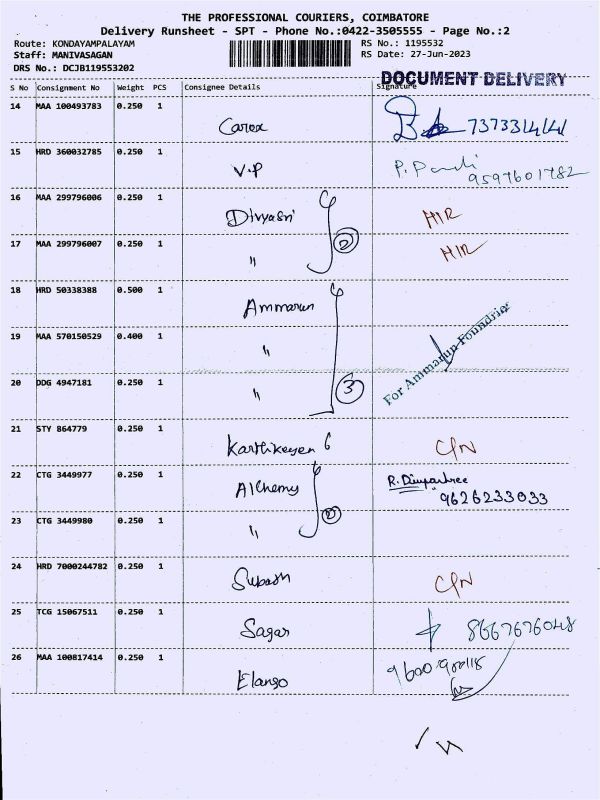 THE PROFESSIONAL COURIERS, COIMBATORE
Delivery Runsheet - SPT - Phone No.:0422-3505555 - Page No.:2
Route: KONDAYAMPALAYAM
Staff: MANIVASAGAN
DRS No.: DCJB119553202
RS No.: 1195532
RS Date: 27-Jun-2023
DOCUMENT DELIVERY
S No Consignment No Weight PCS Consignee Details Signature
14 MAA 100493783 0.250 1
Carox 7373314141
15 HRD 360032785 0.250 1
V.P P. Pandi
9597601782
16 MAA 299796006 0.250 1
Divyasri MIR
17 MAA 299796007 0.250 1
" 2 MIR
18 HRD 50338388 0.500 1
Ammarun
19 MAA 570150529 0.400 1
"
For Ammarun Foundries
20 DDG 4947181 0.250 1
" 3
21 STY 864779 0.250 1
Karthikeyen G C/N
22 CTG 3449977 0.250 1
Alchemy R. Divyashree
9626233033
23 CTG 3449980 0.250 1
" 2
24 HRD 7000244782 0.250 1
Subash C/N
25 TCG 15067511 0.250 1
Sagar 8667676048
26 MAA 100817414 0.250 1
Elango